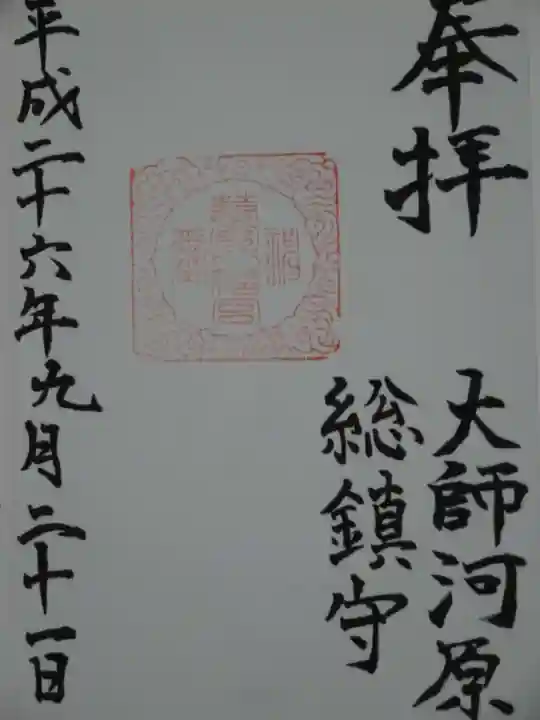 奉拝
大師河原
総鎮守
平成二十六年九月二十一日